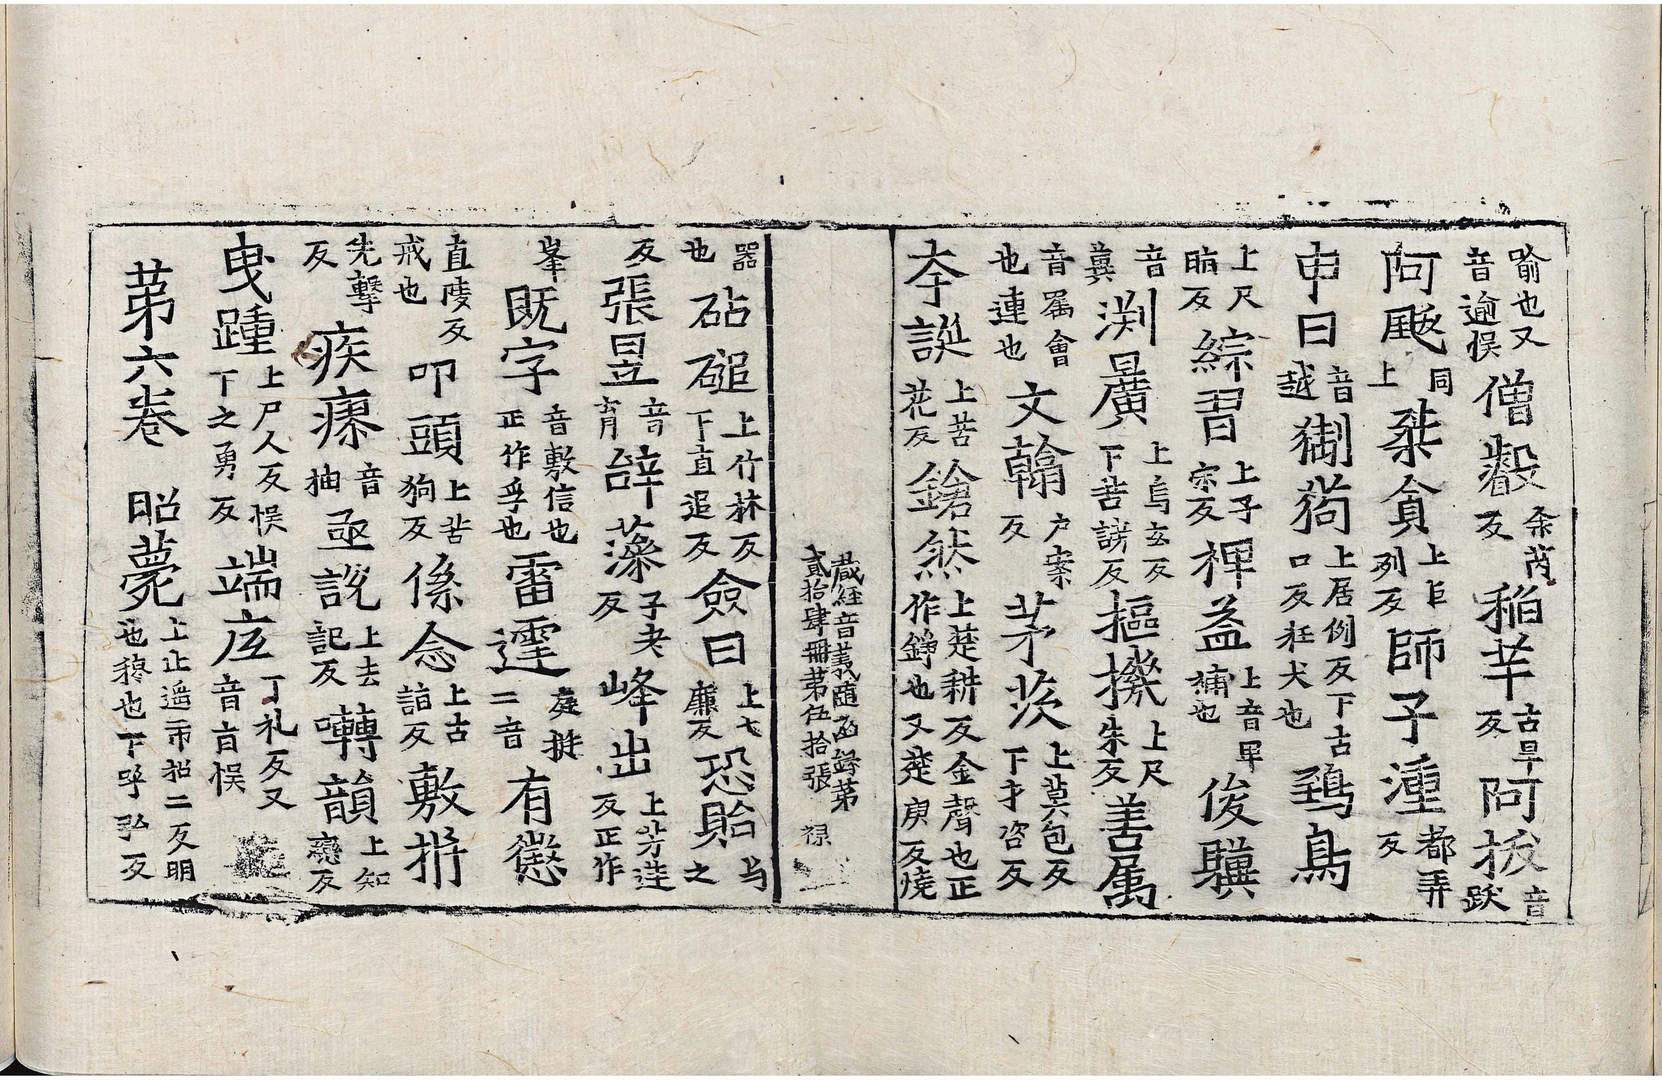 喻也又音逾悮僧叡余芮反稲芉古旱反阿拔音跋
阿颰同上桀貪上巨列反師子湩都弄反
申日音越猘狗上居例反下古口反狂犬也鵄鳥
上尺脂反綜習上子宋反裨益上音卑補也俊驥
音冀渕曠上烏玄反下苦謗反摳撥上尺朱反善属
音属會也連也文翰戶案反茅茨上莫包反下才咨反
夸誕上苦花反鎗然上楚耕反金聲也正作錚也又楚庚反燒
藏經音義随函録第貳拾肆冊第伍拾張 禄
器也砧磓上竹林反下直追反僉曰上七廉反恐貽上与之
反張昱音育辞藻子老反峰出上芳逄反正作
峯既字音敷信也正作孚也雷霆二音庭挺有懲
直陵反戒也叩頭上苦狗反係念上古詣反敷捋
先擊反疾瘵音抽亟說上去記反囀韻上知戀反
曳踵上尸人反悮下之勇反端㡳丁礼反又音盲悮
第六卷 昭薨上止遥市招二反明也穆也下呼弘反